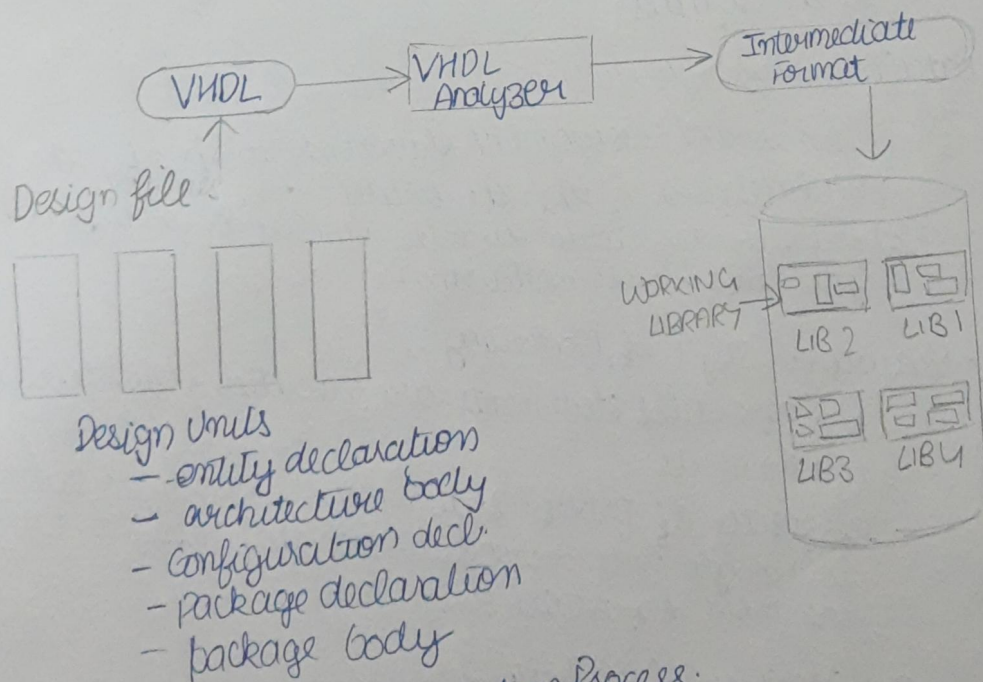 VHDL
VHDL
Analyzer
Intermediate
Format
Design file
WORKING
LIBRARY
LIB 2
LIB 1
LIB3
LIB4
Design Units
- entity declaration
- architecture body
- Configuration decl.
- package declaration
- package body
Process.